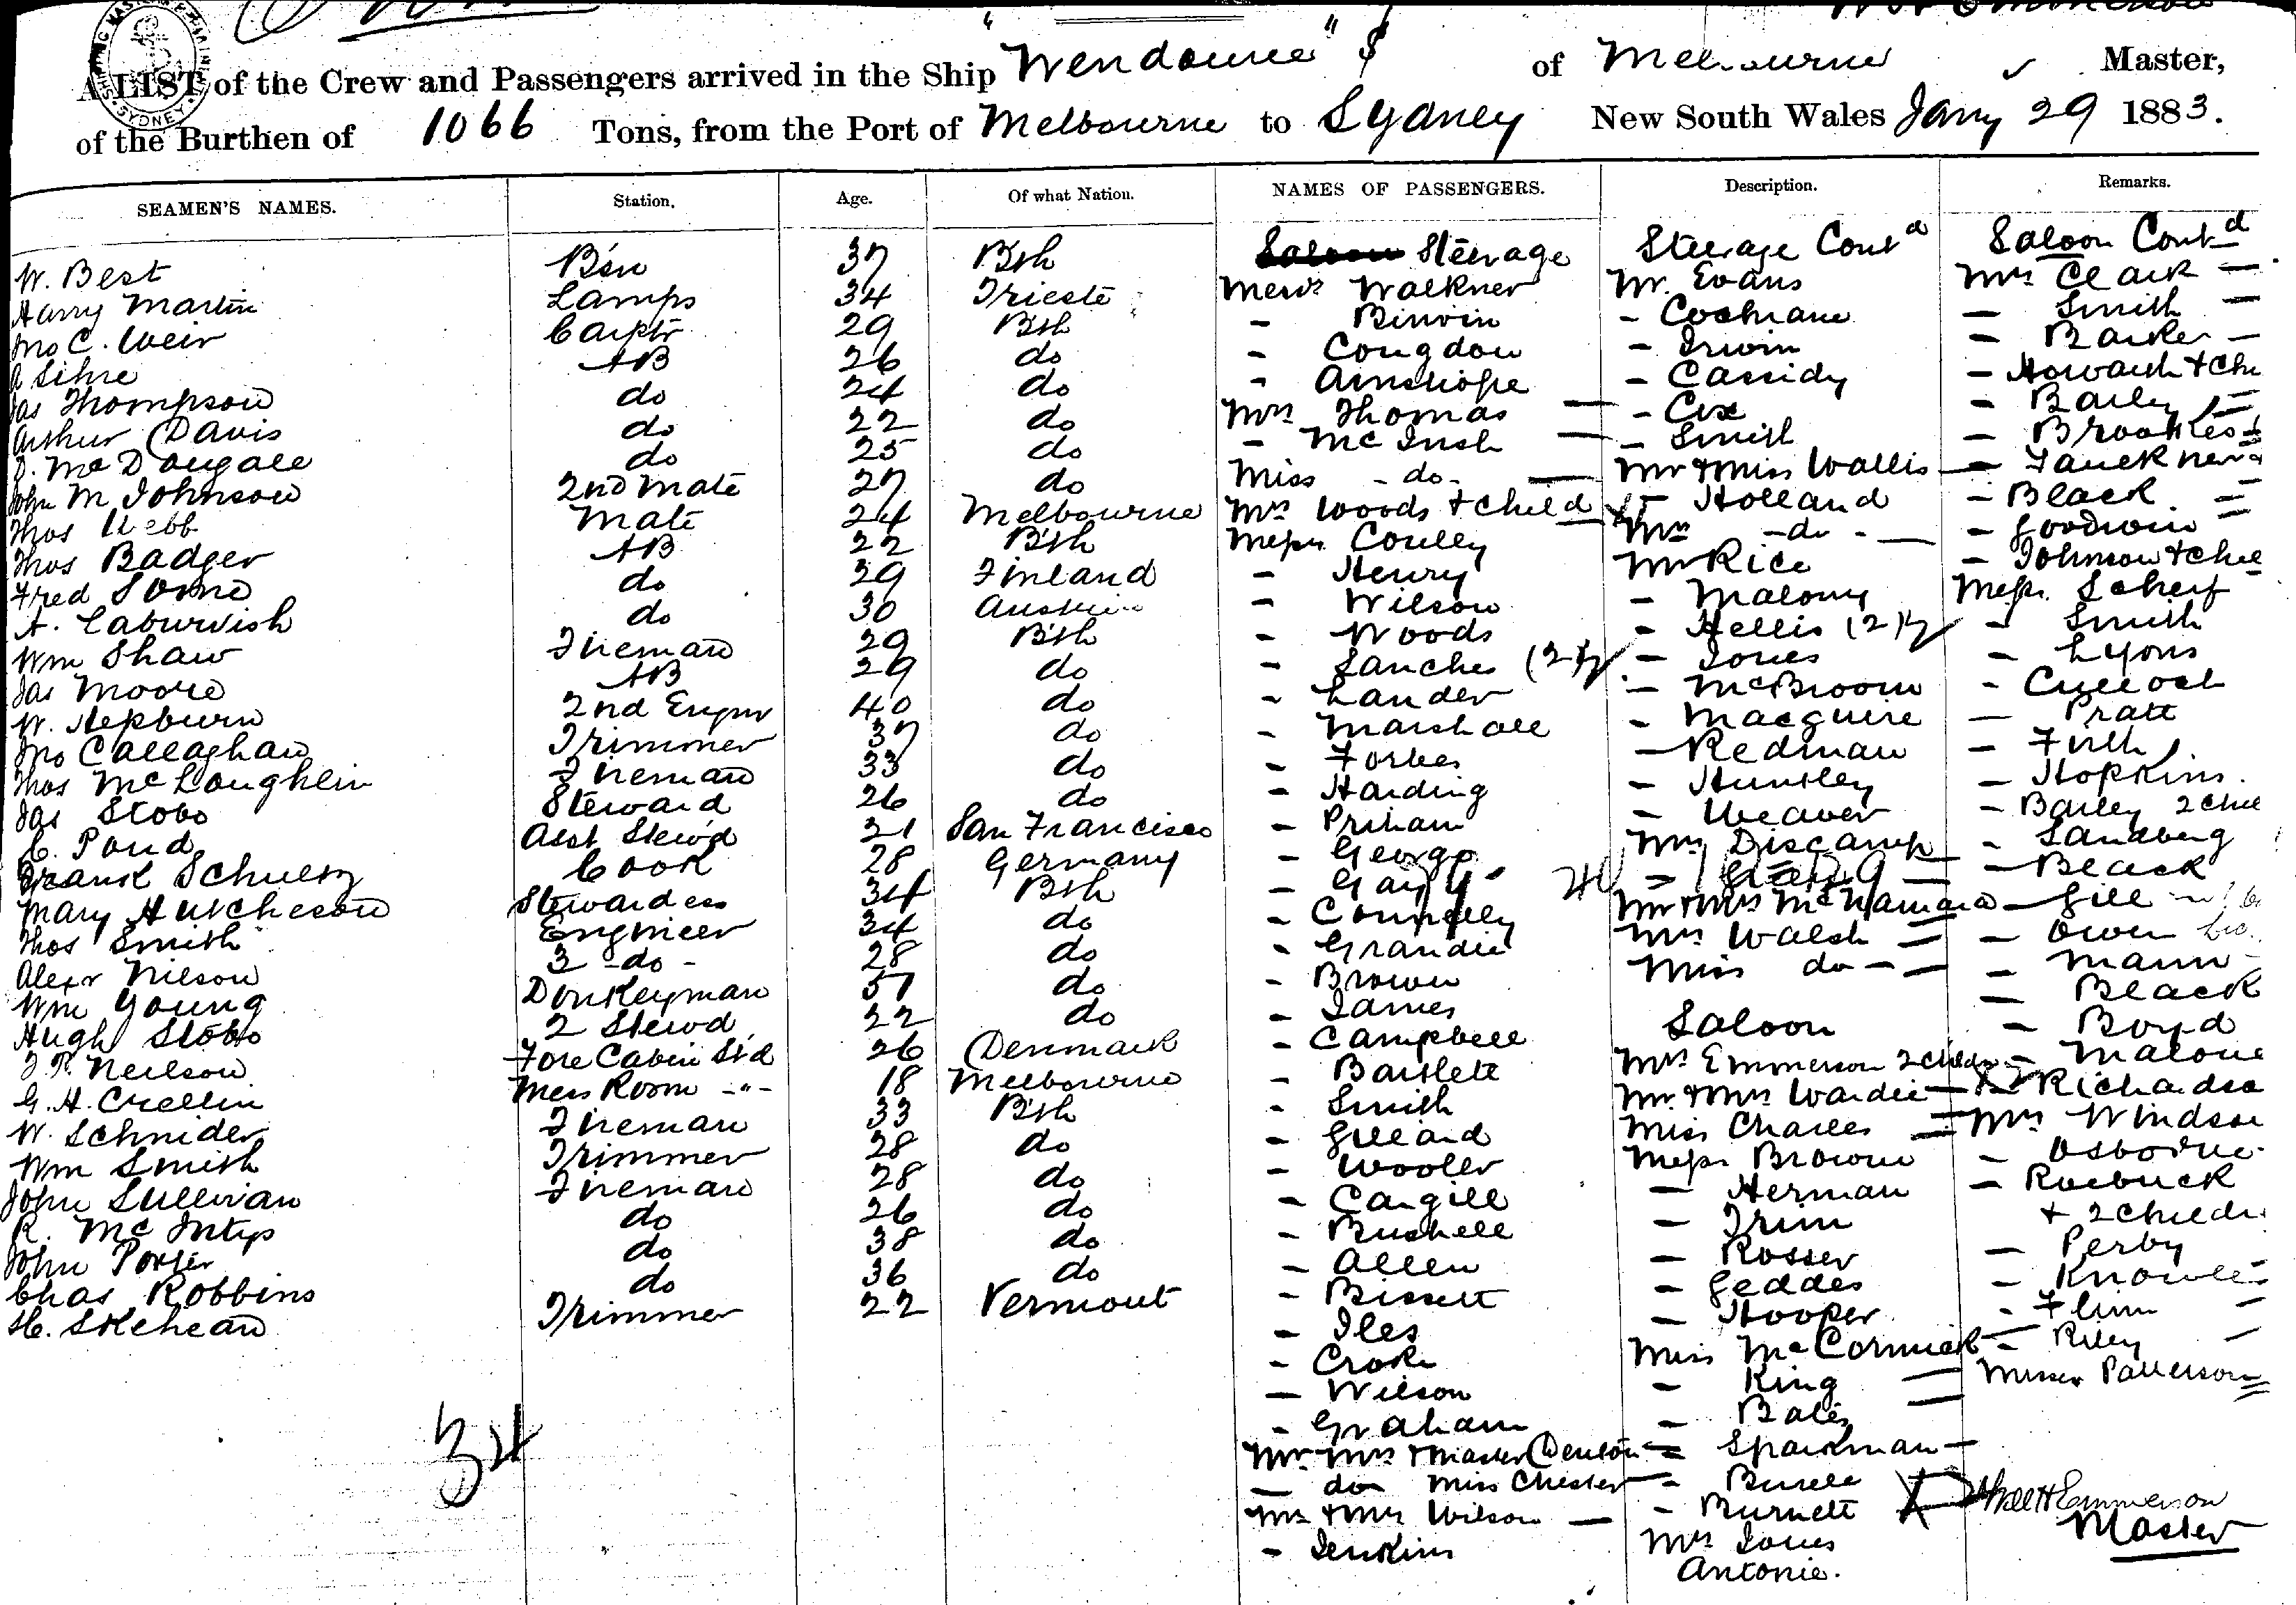 "Wendouree" $
A LIST of the Crew and Passengers arrived in the Ship of Melbourne Master,
of the Burthen of 1066 Tons, from the Port of Melbourne to Sydney New South Wales Jany 29 1883.
SEAMEN'S NAMES. Station. Age. Of what Nation. NAMES OF PASSENGERS. Description. Remarks.
W. Best Bsn 37 Bsh
Harry Martin Lamps 34 Trieste
Jno C. Weir Carptr 29 Bsh
AB 26 do
Jas Thompson do 24 do
Arthur Davis do 22 do
D. McDougall do 25 do
John M Johnson 2nd Mate 27 do
Thos Webb Mate 24 Melbourne
Thos Badger AB 22 Bsh
Fred do 29 Finland
A. do 30 Austria
Wm Shaw Fireman 29 Bsh
Jas Moore AB 29 do
W. Hepburn 2nd Engnr 40 do
Jno Callaghan Trimmer 37 do
Thos McLoughlin Fireman 33 do
Jas Stobo Steward 26 do
C. Pond Asst Stewd 21 San Francisco
Frank Schultz Cook 28 Germany
Mary Hutcheson Stewardess 34 Bsh
Thos Smith Engineer 34 do
Alexr Nilson 3 -do- 28 do
Wm Young Donkeyman 37 do
Hugh Stobo 2 Stewd 22 do
Neilson Fore Cabin Std 26 Denmark
G. H. Crellin Mess Room -"- 18 Melbourne
W. Schnider Fireman 33 Bsh
Wm Smith Trimmer 28 do
John Sullivan Fireman 28 do
R. McIntyr do 26 do
John Porter do 38 do
Chas Robbins do 36 do
Trimmer 22 Vermont
34
Steerage
Messrs Walkner
- Binvin
- Congdon
-
Mrs Thomas -
- McInsh -
Miss -do- -
Mrs Woods + Child
Messrs Coulley
- Henry
- Wilson
- Woods
- Sanches (2)
- Lander
- Marshall
- Forbes
- Harding
- Priham
- George
- Gay
- Connelly
- Grandie
- Brown
- James
- Campbell
- Bartlett
- Smith
- Gillard
- Wooller
- Cargill
- Bushell
- Allen
- Bissett
- Iles
- Croke
- Wilson
- Graham
Mr Mrs + Master Denton
- do Miss Chester
Mr + Mrs Wilson -
- Jenkins
Steerage Contd
Mr. Evans
- Cochrane
- Irwin
- Cassidy
- Cox
- Smith
Mr + Miss Wallis
- Holland
Mrs -do- -
Mr Rice
- Malony
- Hellis (2)
- Jones
- McBroom
- Macguire
- Redman
- Huntley
- Weaver
Mrs Discamp
-
Mr + Mrs McNamara
Mrs Walsh -
Miss do -
Saloon
Mrs Emmerson 2 childn
Mr. + Mrs Wardie
Miss Charles
Messrs Browne
- Herman
- Trim
- Rosser
- Geddes
- Hooper
Miss McCormick
- King -
- Bates
- Sparkman -
- Burell
- Burnett
Mrs Jones
Antonie.
Saloon Contd
Mrs Clark -
- Smith -
- Barker -
- Howarth + Chi
- Bailey
- Brookes
- Faulkner
- Black
- Goodwin
- Johnson + chil
Messrs. Scherf
- Smith
- Lyons
- Culloch
- Pratt
- Firth
- Hopkins.
- Bailey 2 chil
- Sandberg
- Black
- Gill
- Owen
- Mann
- Black
- Boyd
- Malone
- Richardso
Mrs Windso
- Osborne
- Roebuck
+ 2 childr
- Perby
- Knowle
- Flinn -
- Riley -
Misses Patterson
Will H Emmerson
Master